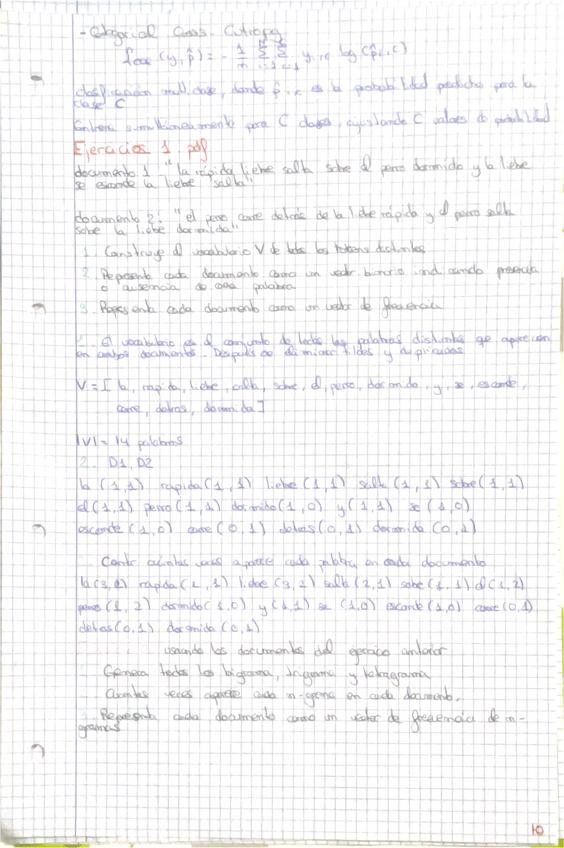 - Categorial Cross-Entropy
Loss (y, p̂) = - 1/m Σ Σ y i,c log (p̂ i,c)
clasificación multiclase, donde p̂ i,c es la probabilidad predicha para la
clase C
Entrena simultáneamente para C clases, ajustando C valores de probabilidad
Ejercicios 1 pdf
documento 1 "la rápida liebre salta sobre el perro dormido y la liebre
se esconde la liebre salta"
documento 2: "el perro corre detrás de la liebre rápida y el perro salta
sobre la liebre dormida"
1. Construye el vocabulario V de todos los tokens distintos
2. Representa cada documento como un vector binario indicando presencia
o ausencia de cada palabra
3. Representa cada documento como un vector de frecuencia
El vocabulario es el conjunto de todas las palabras distintas que aparecen
en ambos documentos. Después de eliminar tildes y duplicados
V = [ la, rapida, liebre, salta, sobre, el, perro, dormido, y, se, esconde,
corre, detras, dormida ]
|V| = 14 palabras
2. D1, D2
la (1,1) rapida (1,1) liebre (1,1) salta (1,1) sobre (1,1)
el (1,1) perro (1,1) dormido (1,0) y (1,1) se (1,0)
esconde (1,0) corre (0,1) detras (0,1) dormida (0,1)
Contar cuántas veces aparece cada palabra en cada documento
la (3,2) rapida (1,1) liebre (3,2) salta (2,1) sobre (1,1) el (1,2)
perro (1,2) dormido (1,0) y (1,1) se (1,0) esconde (1,0) corre (0,1)
detras (0,1) dormida (0,1)
usando los documentos del ejercicio anterior
Genera todos los bigrama, trigrama y tetragrama
Cuantas veces aparece cada n-grama en cada documento.
Representa cada documento como un vector de frecuencia de n-
gramas
10